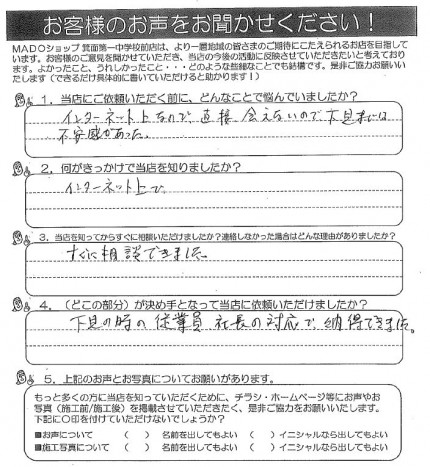 お客様のお声をお聞かせください！
MADOショップ 箕面第一中学校前店は、より一層地域の皆さまのご期待にこたえられるお店を目指して
います。お客様のご意見を聞かせていただき、当店の今後の活動に反映させていただきたいと考えており
ます。よかったこと、うれしかったこと・・・どのような些細なことでも結構です。是非ご協力お願いい
たします（できるだけ具体的に書いていただけると助かります！）
1．当店にご依頼いただく前に、どんなことで悩んでいましたか？
インターネット上なので、直接会えないので下見までは
不安感があった。
2．何がきっかけで当店を知りましたか？
インターネット上で
3．当店を知ってからすぐに相談いただけましたか？連絡しなかった場合はどんな理由がありましたか？
すぐに相談できました。
4．（どこの部分）が決め手となって当店に依頼いただけましたか？
下見の時の従業員 社長の対応で、納得できました。
5．上記のお声とお写真についてお願いがあります。
もっと多くの方に当店を知っていただくために、チラシ・ホームページ等にお声やお
写真（施工前/施工後）を掲載させていただきたく、是非ご協力をお願いいたします。
下記に〇印を付けていただけないでしょうか？
■お声について （　） 名前を出してもよい （　）イニシャルなら出してもよい
■施工写真について （　） 名前を出してもよい （　）イニシャルなら出してもよい